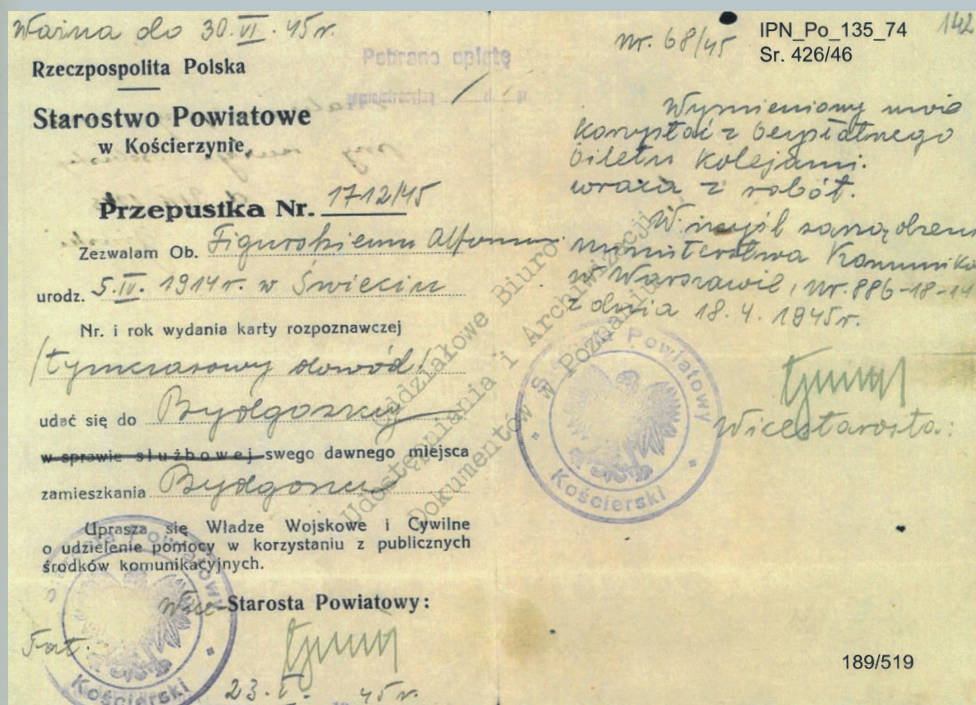 Ważna do 30.VI.45r.
Rzeczpospolita Polska
Starostwo Powiatowe
w Kościerzynie
Pobrano opłatę
Przepustka Nr. 1712/45
Zezwalam Ob. Figurskiemu Alfonsowi
urodz. 5.IV. 1914r. w Świeciu
Nr. i rok wydania karty rozpoznawczej
/tymczasowy dowód/
udać się do Bydgoszczy
w sprawie służbowej swego dawnego miejsca
zamieszkania Bydgoszcz
Uprasza się Władze Wojskowe i Cywilne
o udzielenie pomocy w korzystaniu z publicznych
środków komunikacyjnych.
Wice-Starosta Powiatowy:
23. 45r.
Starosta Powiatowy
Kościerski
nr. 68/45
IPN_Po_135_74
Sr. 426/46
142
Wymieniony
korzystać z bezpłatnego
biletu kolejami.
wraca z robót.
W myśl
ministerstwa
w Warszawie, nr. 886-18-14
z dnia 18.4.1945r.
Wicestarosta:
Starosta Powiatowy
Kościerski
Oddziałowe Biuro
Udostępniania i Archiwizacji
Dokumentów w Poznaniu
189/519